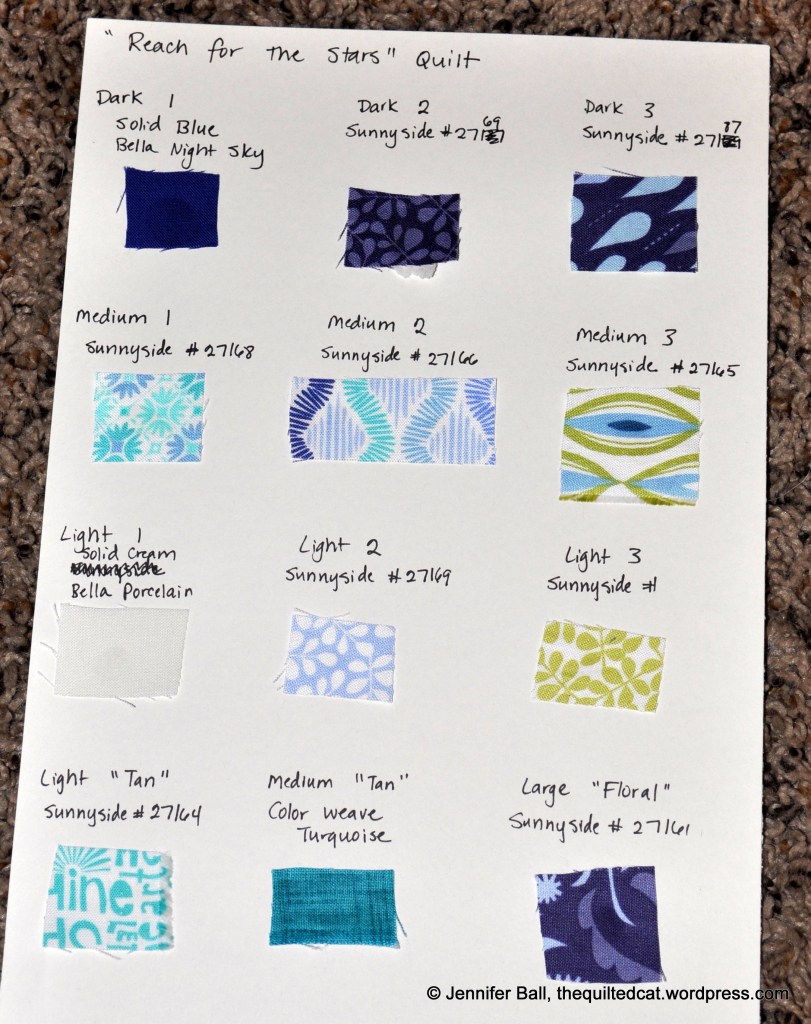 "Reach for the Stars" Quilt
Dark 1
Solid Blue
Bella Night Sky
Dark 2
69
Sunnyside # 271
Dark 3
17
Sunnyside # 271
Medium 1
Sunnyside # 27168
Medium 2
Sunnyside # 27166
Medium 3
Sunnyside # 27165
Light 1
Solid Cream
Sunnyside
Bella Porcelain
Light 2
Sunnyside # 27169
Light 3
Sunnyside #
Light "Tan"
Sunnyside # 27164
Medium "Tan"
Color weave
Turquoise
Large "Floral"
Sunnyside # 27161
hine
© Jennifer Ball, thequiltedcat.wordpress.com